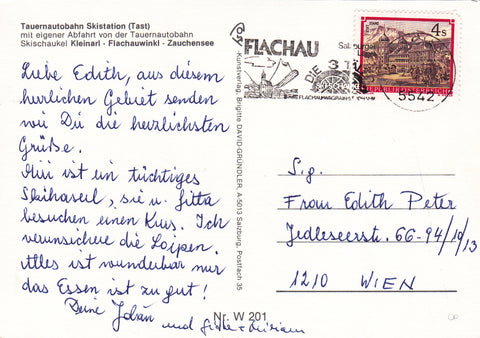 Tauernautobahn Skistation (Tast)
mit eigener Abfahrt von der Tauernautobahn
Skischaukel Kleinarl - Flachauwinkl - Zauchensee
Liebe Edith, aus diesem
herrlichen Gebiet senden
wir Dir die herzlichsten
Grüße.
ist ein tüchtiges
Skihaserl, sie u. Gitta
besuchen einen Kurs. Ich
verunsichere die Loipen.
Alles ist wunderbar nur
das Essen ist zu gut!
Deine
und
Kunstverlag, Brigitte DAVID-GRÜNDLER, A-5013 Salzburg, Postfach 35
Nr. W 201
FLACHAU
DIE 3
5542
4 S
REPUBLIK ÖSTERREICH
Sig.
Frau Edith Peter
Jedleseerstr. 66-94/10/13
1210 WIEN